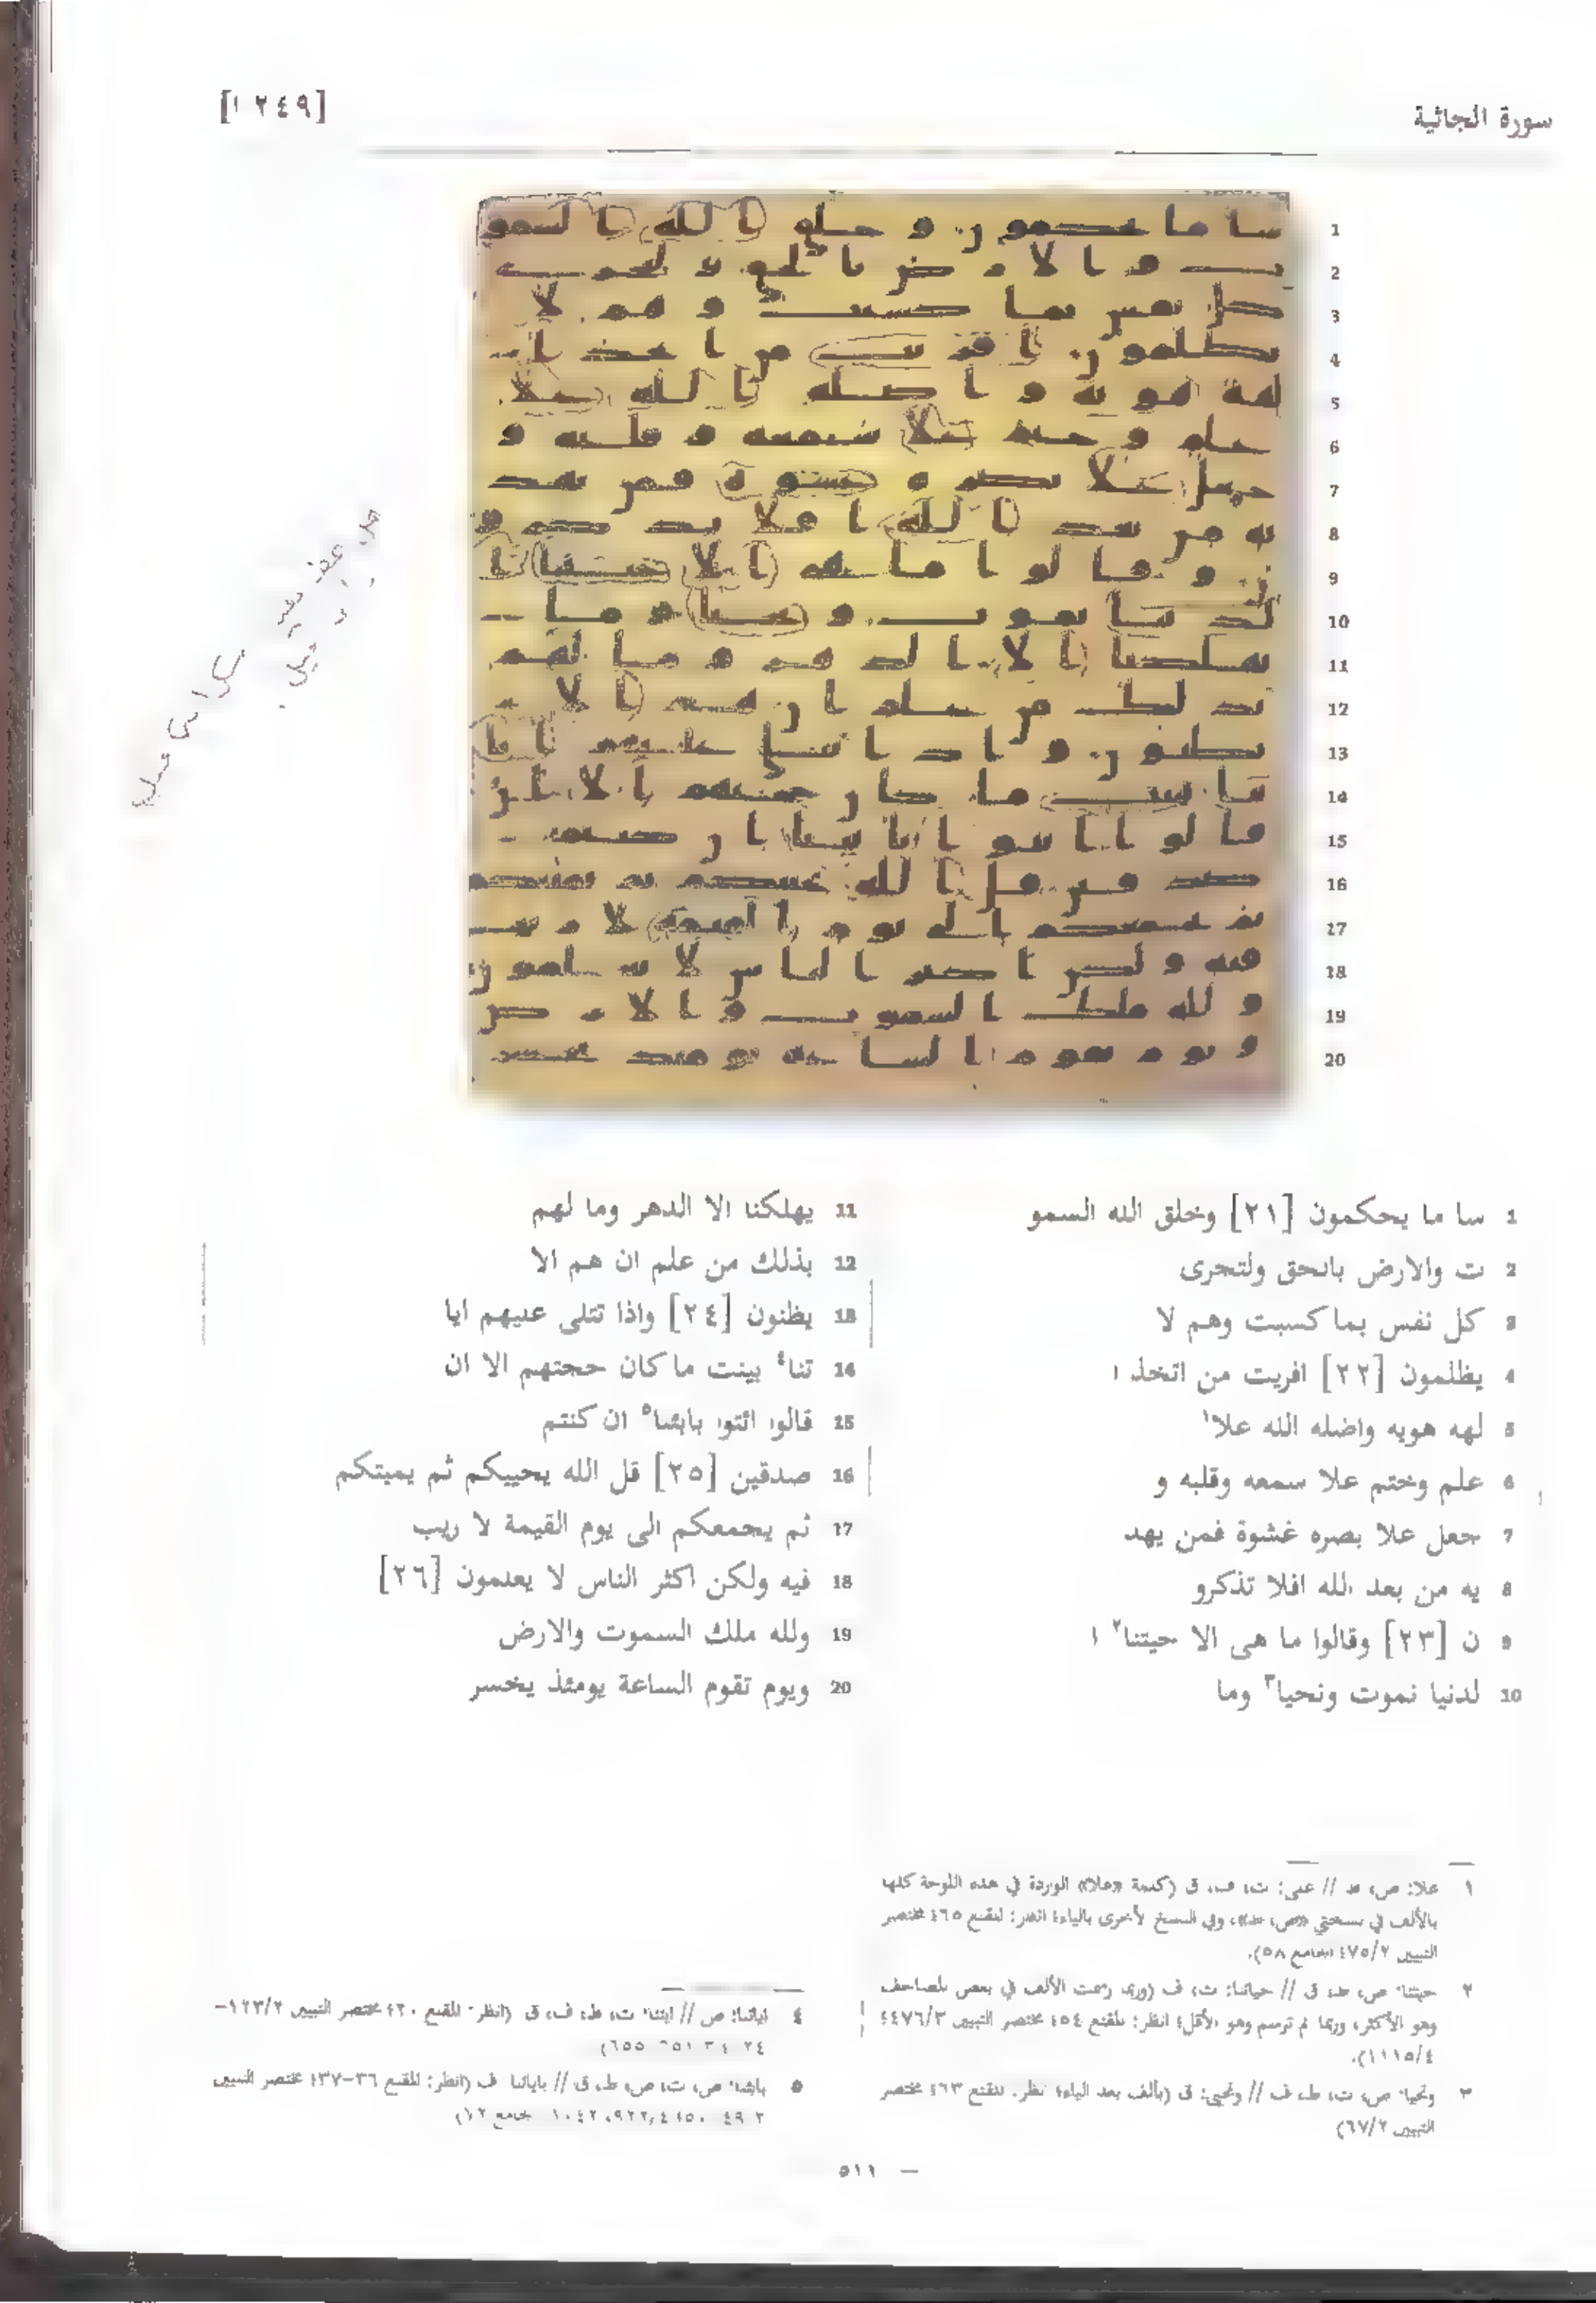 سورة الجاثية
[٢٤٩ ا]
1 سا ما يحكمون [٢١] وخلق الله السمو
2 ت والارض بالحق ولتجزى
3 كل نفس بما كسبت وهم لا
4 يظلمون [٢٢] افريت من اتخذ ا
5 لهه هويه واضله الله علا١
6 علم وختم علا سمعه وقلبه و
7 جعل علا بصره غشوة فمن يهد
8 يه من بعد الله افلا تذكرو
9 ن [٢٣] وقالوا ما هى الا حيتنا٢ ا
10 لدنيا نموت ونحيا٣ وما
11 يهلكنا الا الدهر وما لهم
12 بذلك من علم ان هم الا
13 يظنون [٢٤] واذا تتلى عليهم ايا
14 تنا٤ بينت ما كان حجتهم الا ان
15 قالوا ائتوا بابئنا٥ ان كنتم
16 صدقين [٢٥] قل الله يحييكم ثم يميتكم
17 ثم يجمعكم الى يوم القيمة لا ريب
18 فيه ولكن اكثر الناس لا يعلمون [٢٦]
19 ولله ملك السموت والارض
20 ويوم تقوم الساعة يومئذ يخسر
١ علا: ص، ط // على: ت، ف، ق (كلمة «علا» الواردة في هذه اللوحة كلها
بالألف في نسختي «ص، ط»، وفي النسخ الأخرى بالياء؛ انظر: المقنع ٤٦٥ مختصر
التبيين ٤٧٥/٢ الجامع ٥٨).
٢ حيتنا: ص، ط، ق // حياتنا: ت، ف (وربما رسمت الألف في بعض المصاحف
وهو الأكثر، وربما لم ترسم وهو الأقل؛ انظر: المقنع ٤٥٤ مختصر التبيين ٤٤٧٦/٣
١١١٥/٤).
٣ ونحيا: ص، ت، ط، ف // ونحيى: ق (بألف بعد الياء؛ انظر: المقنع ٤٦٣ مختصر
التبيين ٦٧/٢)
٤ اياتنا: ص // ايتنا: ت، ط، ف، ق (انظر: المقنع مختصر التبيين ١٢٣/٢-
٥ بابئنا: ص، ت، ط، ق // باباينا: ف (انظر: المقنع ٣٦-٣٧ مختصر التبيين
— ٥١١